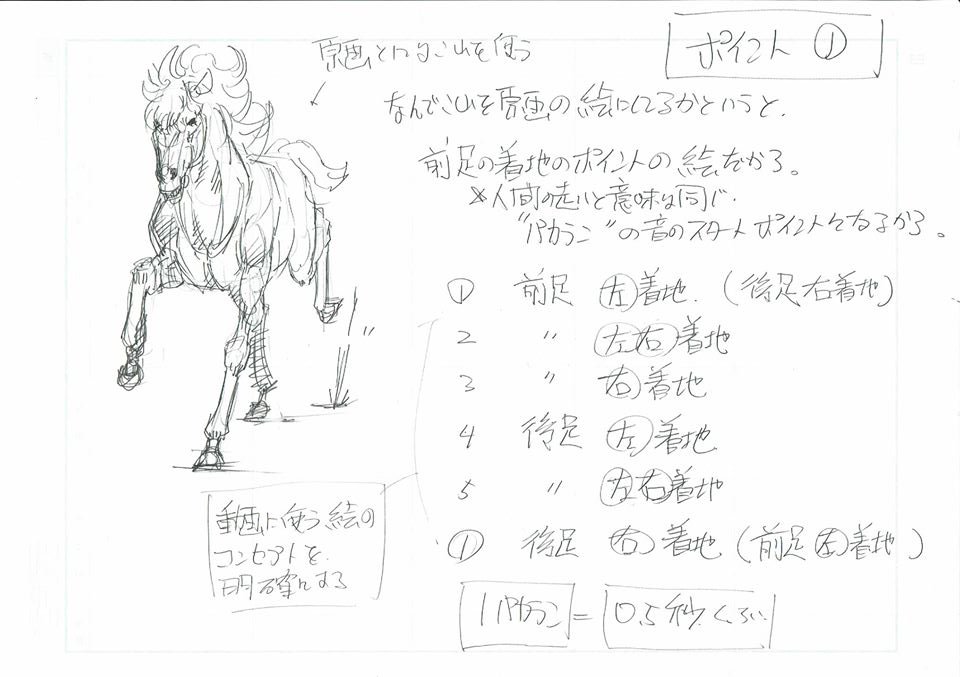 ポイント ①
原画としてこいを使う
なんでこいを原画の絵にしてるかというと、
前足の着地のポイントの絵だから。
※人間の走りと意味は同じ.
"パカラン"の音のスタートポイントになるから。
① 前足 左着地.(後足右着地)
2 〃 左右着地
3 〃 右着地
4 後足 左着地
5 〃 左右着地
① 後足 右着地(前足左着地)
動画に使う絵の
コンセプトを
明確にする
1パカラン = 0.5秒くらい